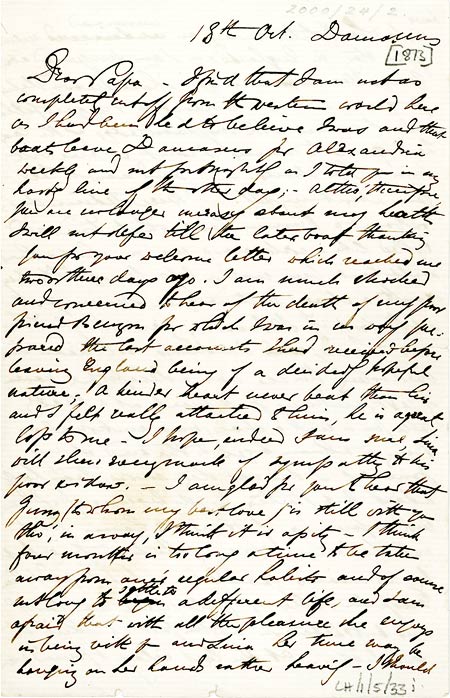 2000/24/2.
18th Oct. Damascus
[1873]
Dear Papa – I find that I am not so
completely cut off from the western world here
as I had been led to believe I was and that
boats leave Damascus for Alexandria
weekly and not fortnightly as I told you in my
hasty line of the other day; –
you are no longer uneasy about my health
I will not defer till the later boat thanking
you for your welcome letter which reached me
two or three days ago. I am much shocked
and concerned to hear of the death of my poor
friend Benzon for which I was in no way pre-
pared the last accounts I had received before
leaving England being of a decidedly hopeful
nature; A kinder heart never beat than his
and I felt really attached to him, he is a great
loss to me – I hope, indeed I am sure Lina
will shew every mark of sympathy to his
poor widow. – I am glad for you to hear that
Gussy (to whom my best love) is still with you
tho', in a way, I think it is a pity – I think
four months is too long a time to be taken
away from one's regular habits and of course
not long to settle to a different life, and I am
afraid that with all the pleasure she enjoys
in being with you and Lina her time may be
hanging on her hands rather heavily – I should
LH/1/5/33 i